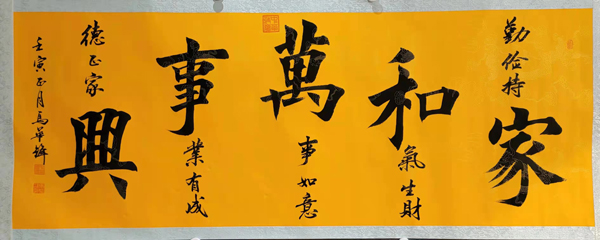 勤俭持家
和氣生財
萬事如意
事業有成
德正家興
壬寅正月馬華